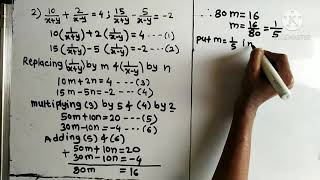 2) 10/x+y + 2/x-y = 4 ; 15/x+y - 5/x-y = -2
10(1/x+y) + 2(1/x-y) = 4 ----- (1)
15(1/x+y) - 5(1/x-y) = -2 --- (2)
Replacing (1/x+y) by m & (1/x-y) by n
10m + 2n = 4 ---- (3)
15m - 5n = -2 ---- (4)
multiplying (3) by 5 & (4) by 2
50m + 10n = 20 --- (5)
30m - 10n = -4 --- (6)
Adding (5) & (6)
50m + 10n = 20
+ 30m - 10n = -4
80m = 16
∴ 80m = 16
m = 16/80 = 1/5
put m = 1/5 in